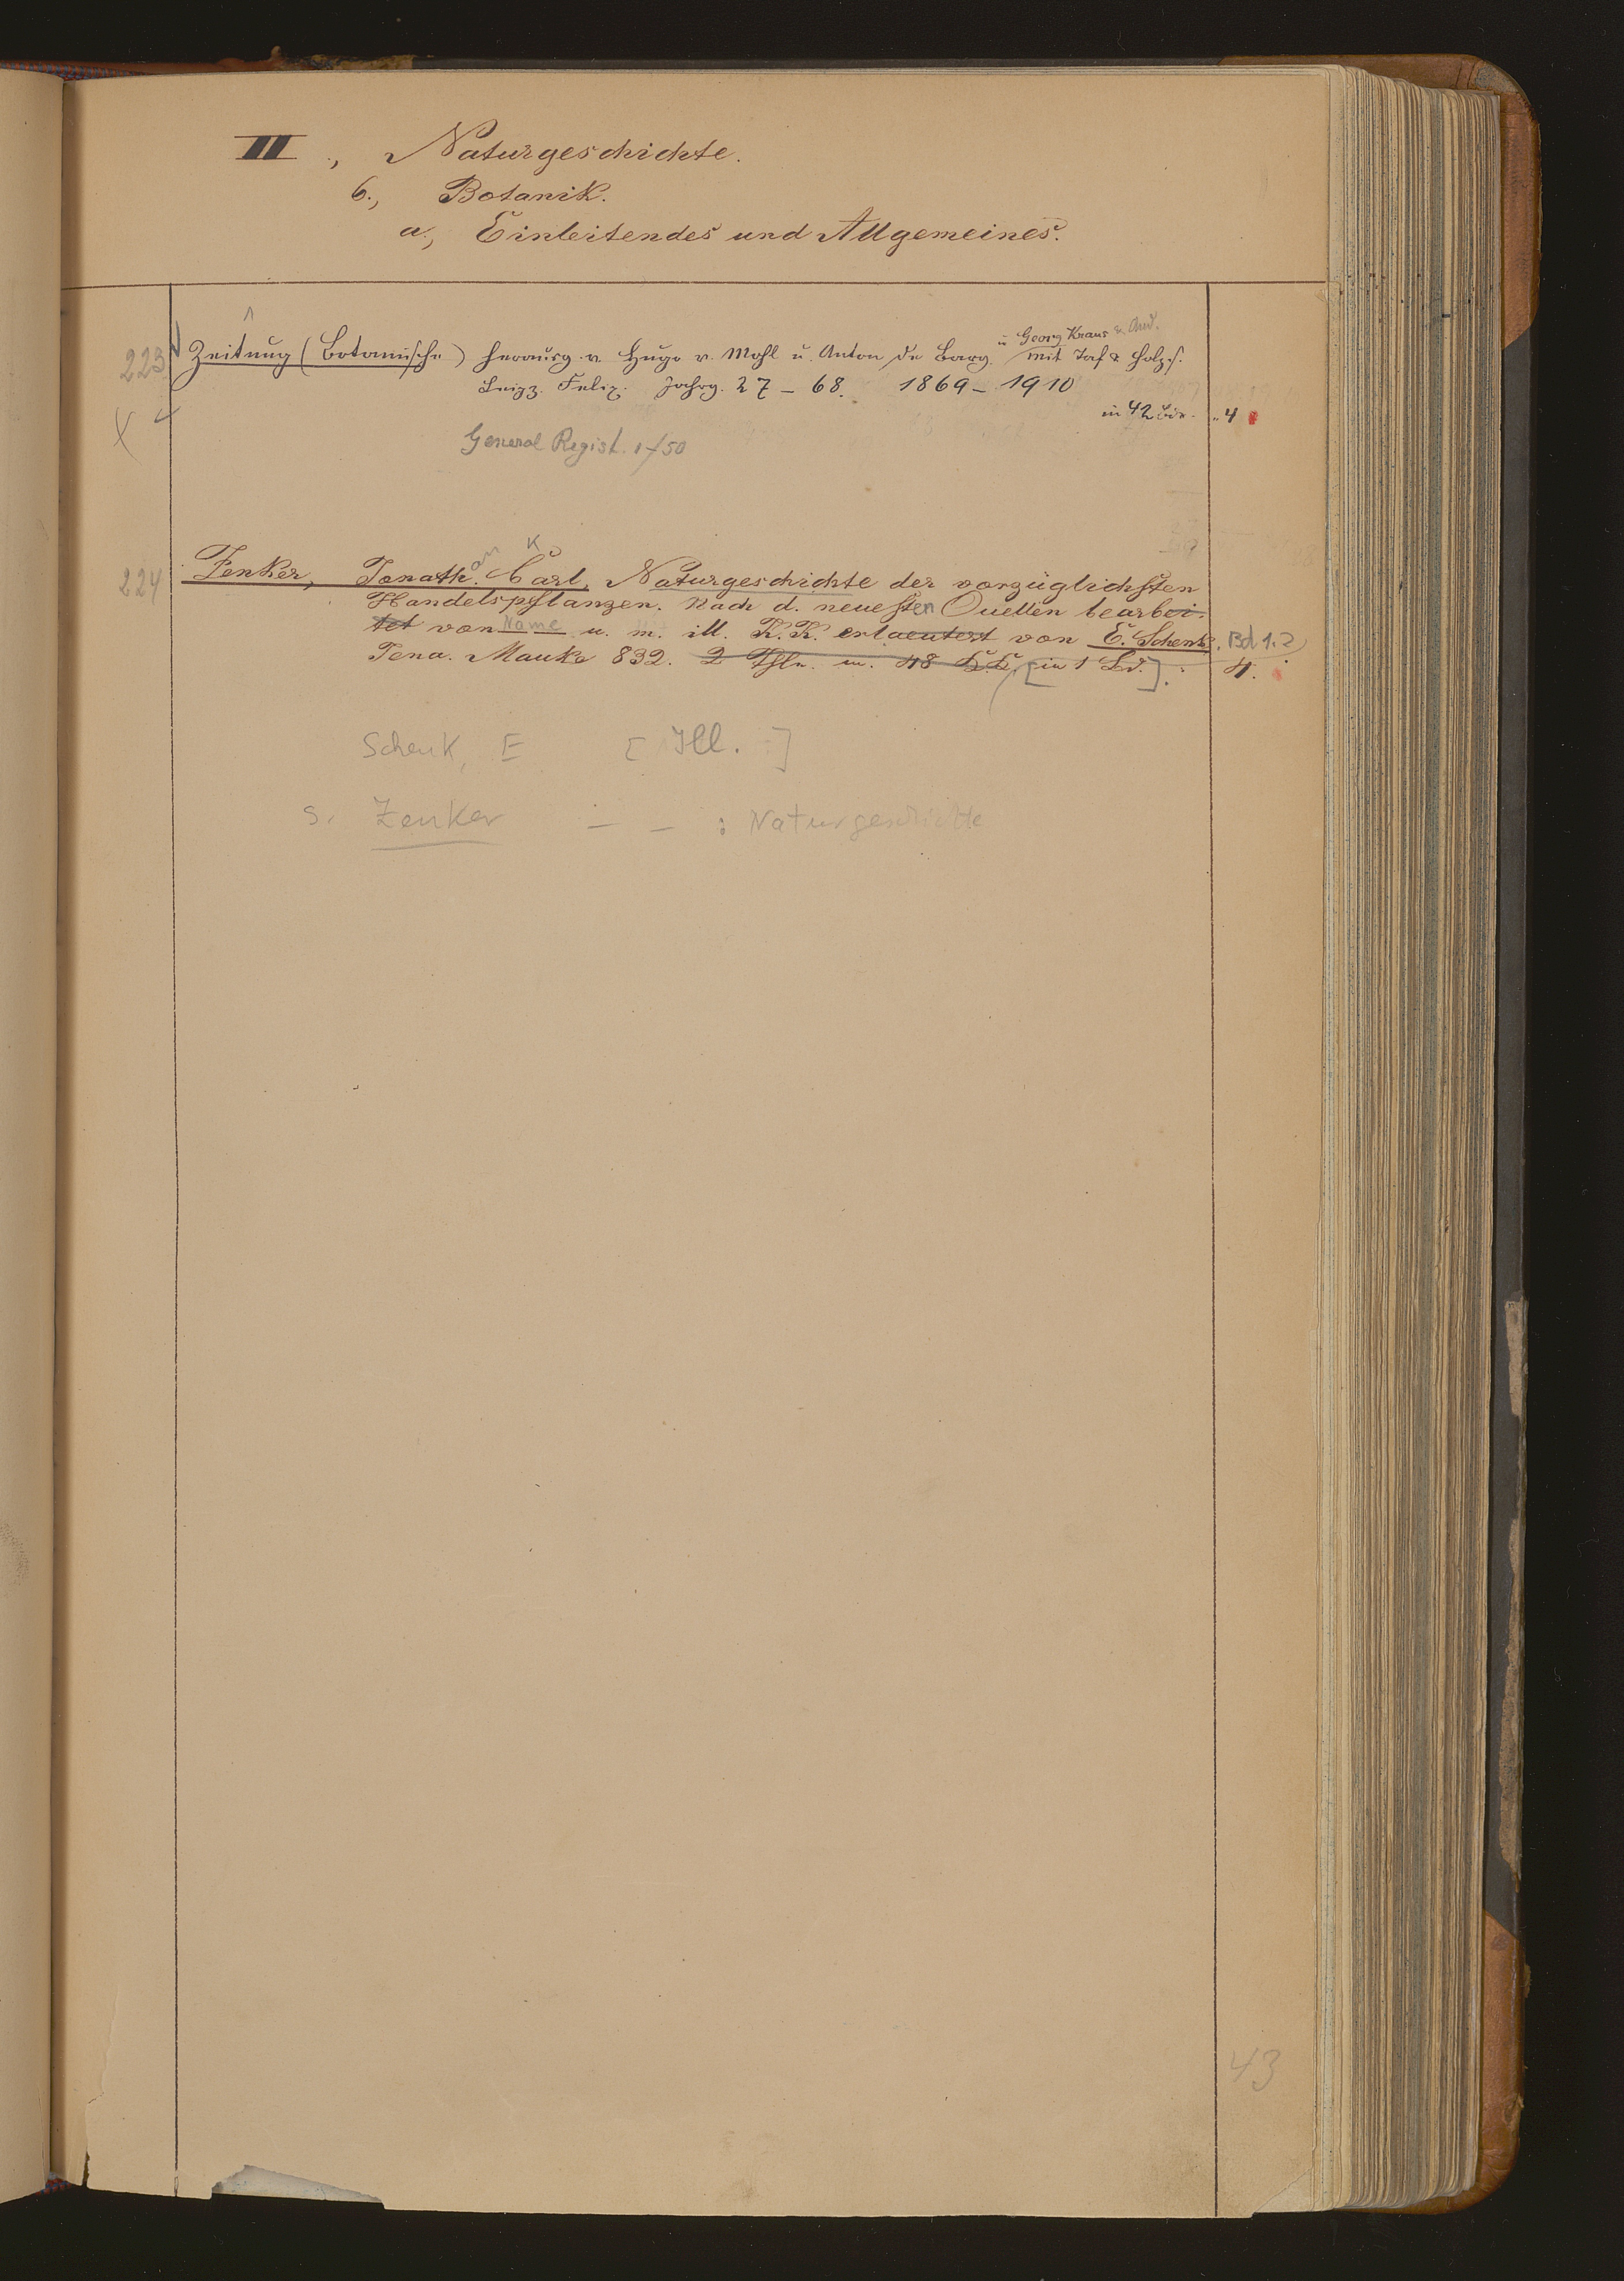 III., Naturgeschichte.
6., Botanik.
a., Einleitendes und Allgemeines.
u Georg Kraus u. And.
223 Zeitung (Botanische) herausg. v. Hugo v. Mohl u. Anton de Bary. mit Taf & Holzs.
Leipz. Felix. Jahrg. 27 – 68. 1869 – 1910
in 42 Bde. 4
General Regist. 1-/50
K
224 Zenker, Jonath. Carl, Naturgeschichte der vorzüglichsten
Handelspflanzen. Nach d. neuesten Quellen bearbei-
tet von Name u. m. ill. K.K. erlaeutert von E. Schenk. Bd 1.2
Jena. Mauke 832. 2 Thle. m. 48 K.K. [in 1 Bd.]. 4.
Schenk, E [Ill. ]
s. Zenker – – : Naturgeschichte
43